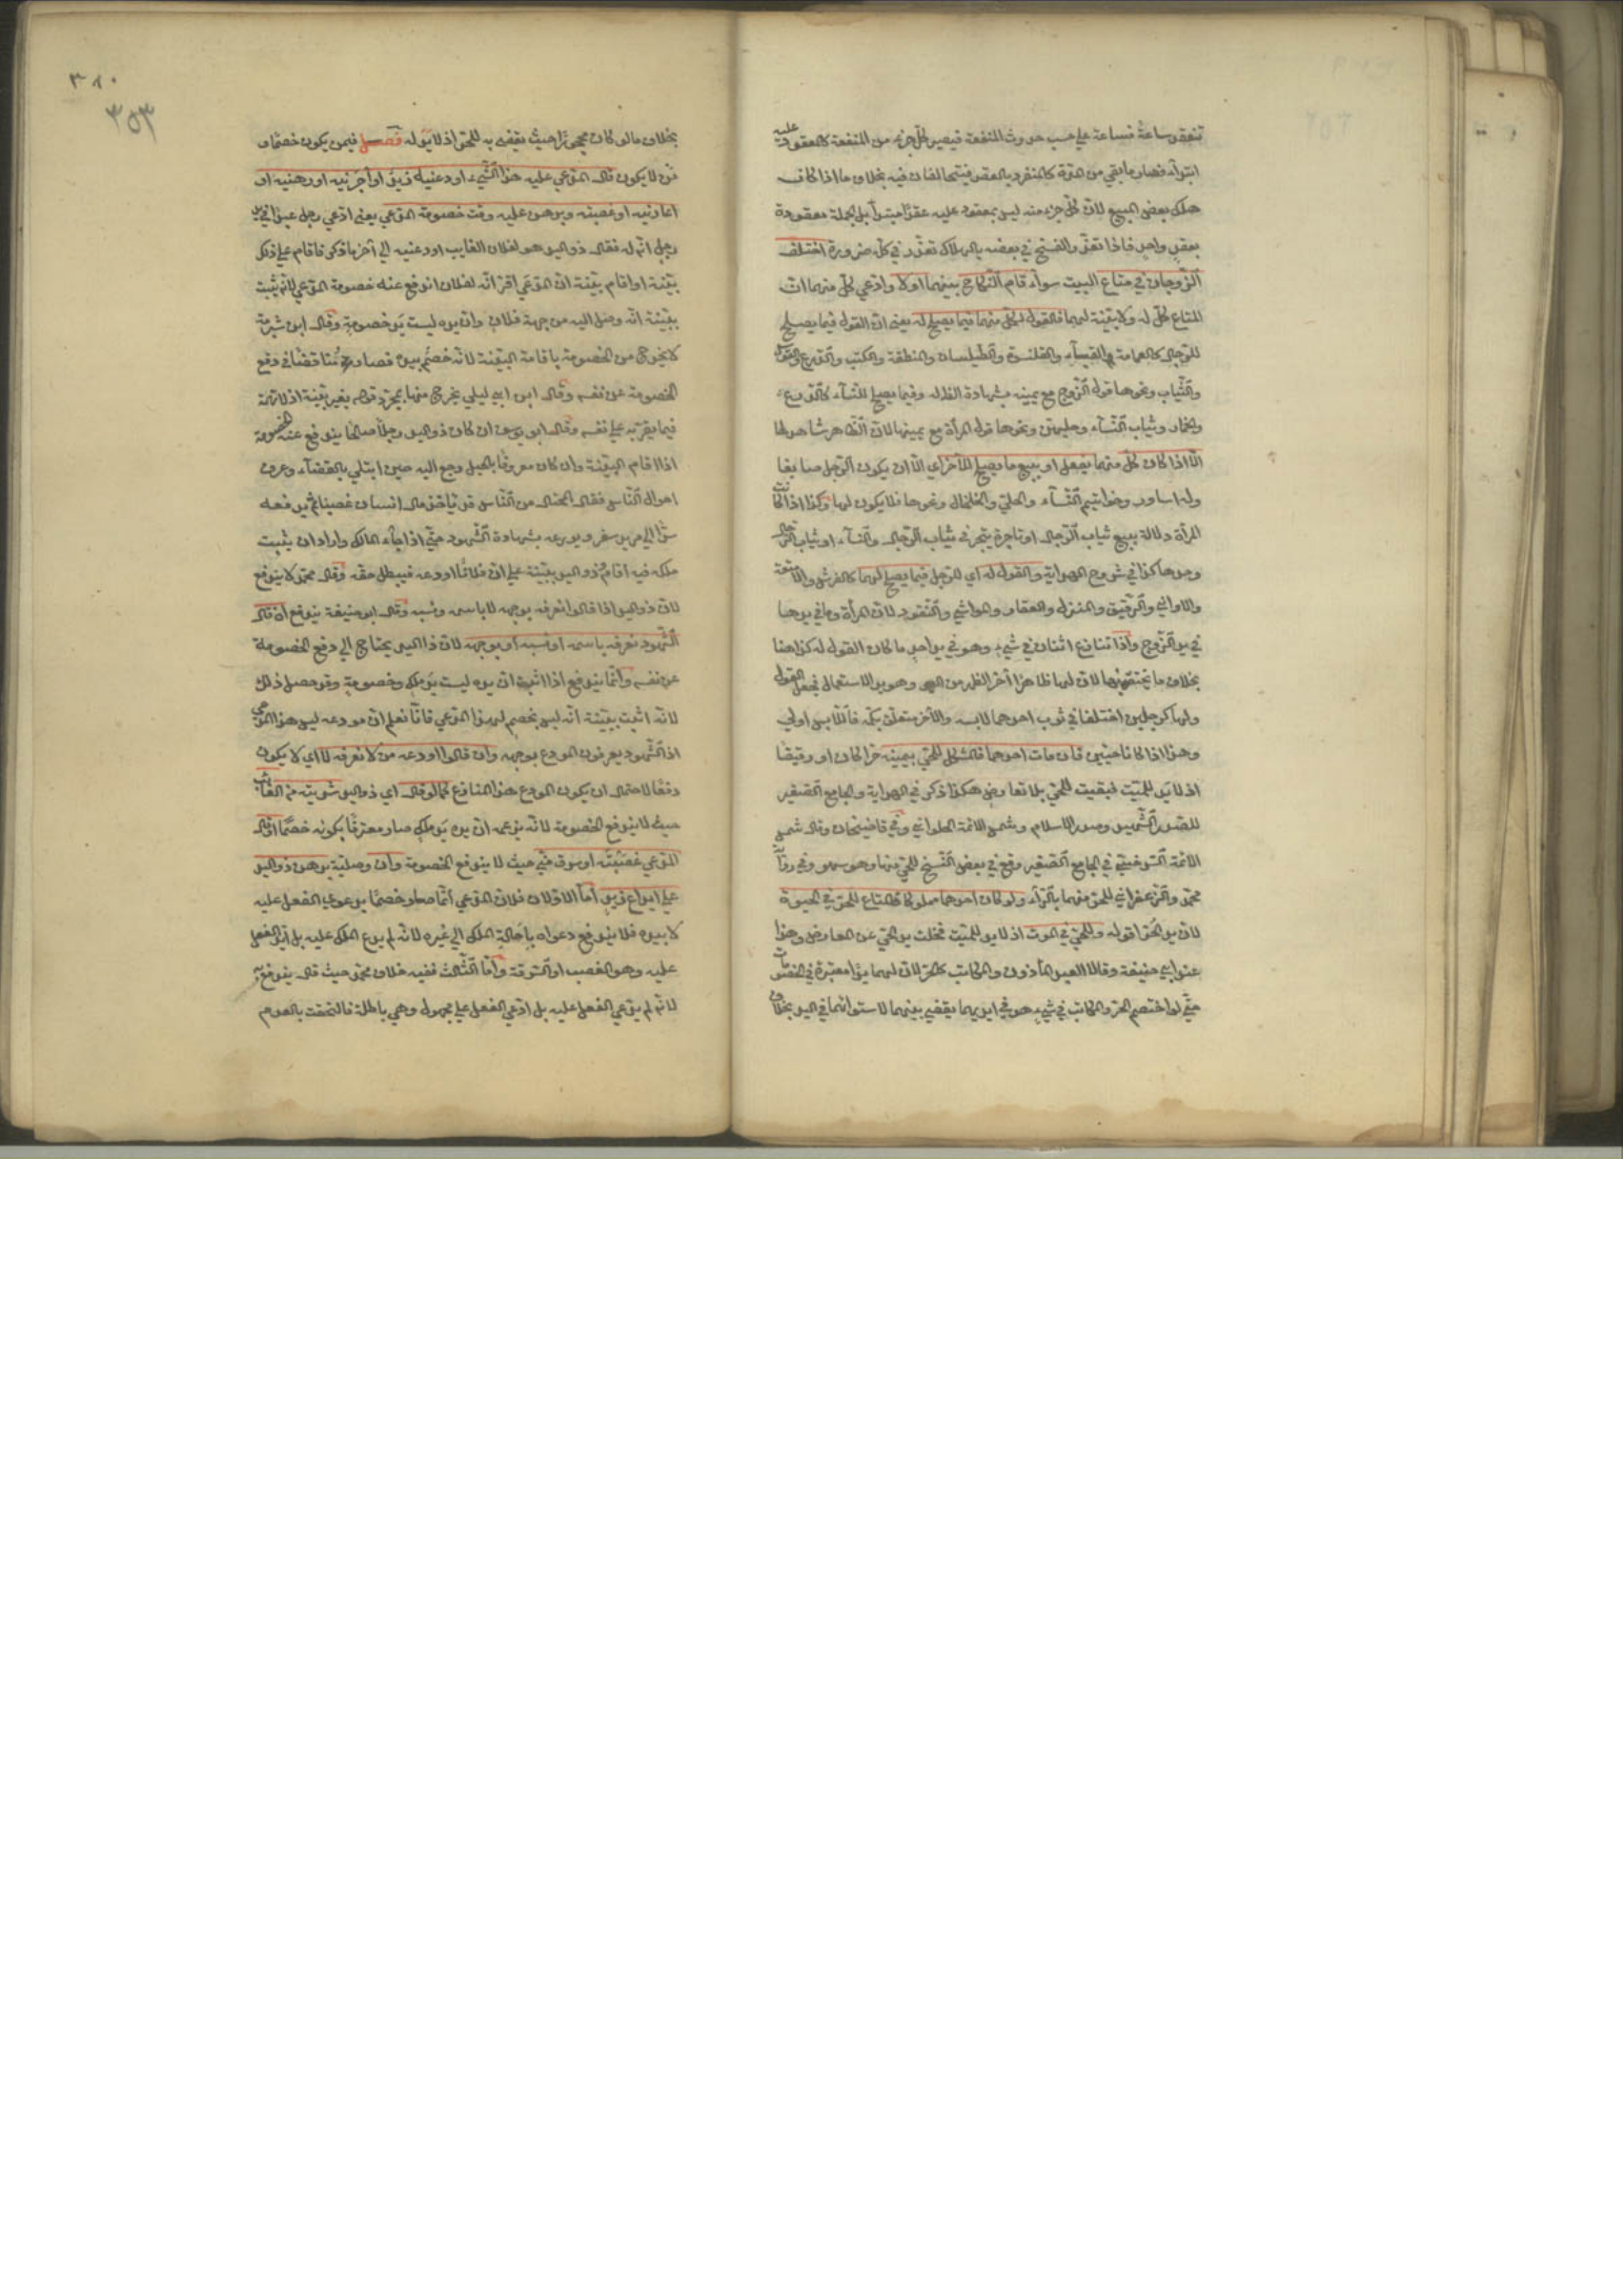 تنعقد ساعة فساعة على حسب حدوث المنفعة فيصير كل جزء من المنفعة كالمعقود عليه
ابتداء فصار ما بقي من المدة كالمنفرد بالعقد فيتحالفان فيه بخلاف ما اذا كان
هلك بعض المبيع لان كل جزء منه ليس بمعقود عليه عقدا مبتدأ بل الجملة معقودة
بعقد واحد فاذا تعذر الفسخ في بعضه بالهلاك تعذر في كله ضرورة اختلف
الزوجان في متاع البيت سواء قام النكاح بينهما اولا وادعي كل منهما ان
المتاع كله له ولا بينة لهما فالقول لكل منهما فيما يصلح له يعني ان القول فيما يصلح
للرجال كالعمامة والقباء والقلنسوة والطيلسان والمنطقة والكتب والدرع والقوس
والنشاب ونحوها قول الزوج مع يمينه بشهادة الظاهر وفيما يصلح للنساء كالدرع
والخمار وثياب النساء وحليهن ونحوها قول المرأة مع يمينها لان الظاهر شاهد لها
الا اذا كان كل منهما يفعل او يبيع ما يصلح للآخر اي الا ان يكون الرجل صايغا
وله اساور وخواتيم النساء والحلي والخلخال ونحوها فلا يكون لها وكذا اذا كانت
المرأة دلالة يبيع ثياب الرجال او تاجرة يتجر في ثياب الرجال والنساء او ثياب الرجال
وحدها كذا في شروح الهداية والقول له اي للرجل فيما يصلح لهما كالفرش والامتعة
والاواني والرقيق والمنزل والعقار والمواشي والنقود لان المرأة وما في يدها
في يد الزوج واذا تنازع اثنان في شيء وهو في يد احدهما كان القول له كذا هنا
بخلاف ما يختص بها لان لها ظاهرا آخر اظهر من اليد وهو يد الاستعمال فجعل القول
لها كرجلين اختلفا في ثوب احدهما لابسه والآخر متعلق بكمه فاللابس اولى
وهذا اذا كانا حيين فان مات احدهما فالمشكل للحي بيمينه حرا كان او رقيقا
اذ لا يد للميت فبقيت للحي بلا تعارض هكذا ذكر في الهداية والجامع الصغير
للصدر الشهيد وصدر الاسلام وشمس الائمة الحلواني وفي قاضيخان وقال شمس
الائمة السرخسي في الجامع الصغير وقع في بعض النسخ للحي منهما وهو سهو وفي رواية
محمد والزعفراني للحر منهما بالراء ولو كان احدهما مملوكا فالمتاع للحر في الحيوة
لان يد الحر اقوى وللحي في الموت اذ لا يد للميت فخلت يد الحي عن المعارض وهذا
عند ابي حنيفة وقالا العبد المأذون والمكاتب كالحر لان لهما يدا معتبرة في الخصومات
حتى لو اختصم الحر والمكاتب في شيء هو في ايديهما يقضي بينهما لاستوائهما في اليد بخلاف
٣٨٠
٣٥٣
بخلاف ما لو كان محجورا حيث يقضى به للحر اذ لا يد له فصل فيمن يكون خصما و
من لا يكون قال المدعي عليه هذا الشيء اودعنيه زيد او آجرنيه او رهنيه او
اعارنيه او غصبته وبرهن عليه دفعت خصومة المدعي يعني ادعي رجل عينا في يد
رجل انه له فقال ذو اليد هو لفلان الغايب اودعنيه الى آخر ما ذكر فاقام على ذلك
بينة او اقام بينة ان المدعي اقر انه لفلان اندفع عنه خصومة المدعي لانه يثبت
ببينة انه وصل اليه من جهة فلان وان يده ليست يد خصومة وقال ابن شبرمة
لا يخرج من الخصومة باقامة البينة لانه خصم بيده فصار متناقضا في دفع
الخصومة عن نفسه وقال ابن ابي ليلي يخرج منها بمجرد قوله بغير بينة اذ لا تهمة
فيما يقر به على نفسه وقال ابو يوسف ان كان ذو اليد رجلا صالحا يندفع عنه الخصومة
اذا اقام البينة وان كان معروفا بالحيل رجع اليه حين ابتلي بالقضاء وعرف
احوال الناس فقال المحتال من الناس قد ياخذ مال انسان غصبا ثم يدفعه
سرا الى مريد سفر ويودعه بشهادة الشهود حتى اذا جاء المالك واراد ان يثبت
ملكه فيه اقام ذو اليد بينة على ان فلانا اودعه فيبطل حقه وقال محمد لا يندفع
لان ذو اليد اذا قالوا نعرفه بوجهه لا باسمه ونسبه وقال ابو حنيفة يندفع ان قال
الشهود نعرفه باسمه او نسبه او بوجهه لان ذا اليد يحتاج الى دفع الخصومة
عن نفسه وانما يندفع اذا اثبت ان يده ليست يد ملك وخصومة وقد حصل ذلك
لانه اثبت ببينة انه ليس بخصم لهذا المدعي فانا نعلم ان مودعه ليس هذا المدعي
اذ الشهود يعرفون المودع بوجهه وان قالوا اودعه من لا نعرفه لا اي لا يكون
دفعا لاحتمال ان يكون المودع هذا المنازع كما لو قال اي ذو اليد شريته من الغائب
حيث لا يندفع الخصومة لانه بزعمه ان يده يد ملك صار معترفا بكونه خصما او قال
المدعي غصبته او سرق مني حيث لا يندفع الخصومة وان وصلية برهن ذو اليد
على ايداع زيد اما الاولان فلان المدعي انما صار خصما بدعوي الفعل عليه
لا بيده فلا يندفع دعواه باحالة الملك الى غيره لانه لم يدع الملك عليه بل الفعل
عليه وهو الغصب او السرقة واما الثالث ففيه خلاف محمد حيث قال يندفع
لانه لم يدعي الفعل عليه بل ادعي الفعل على مجهول وهي باطلة فالتحقت بالعدم